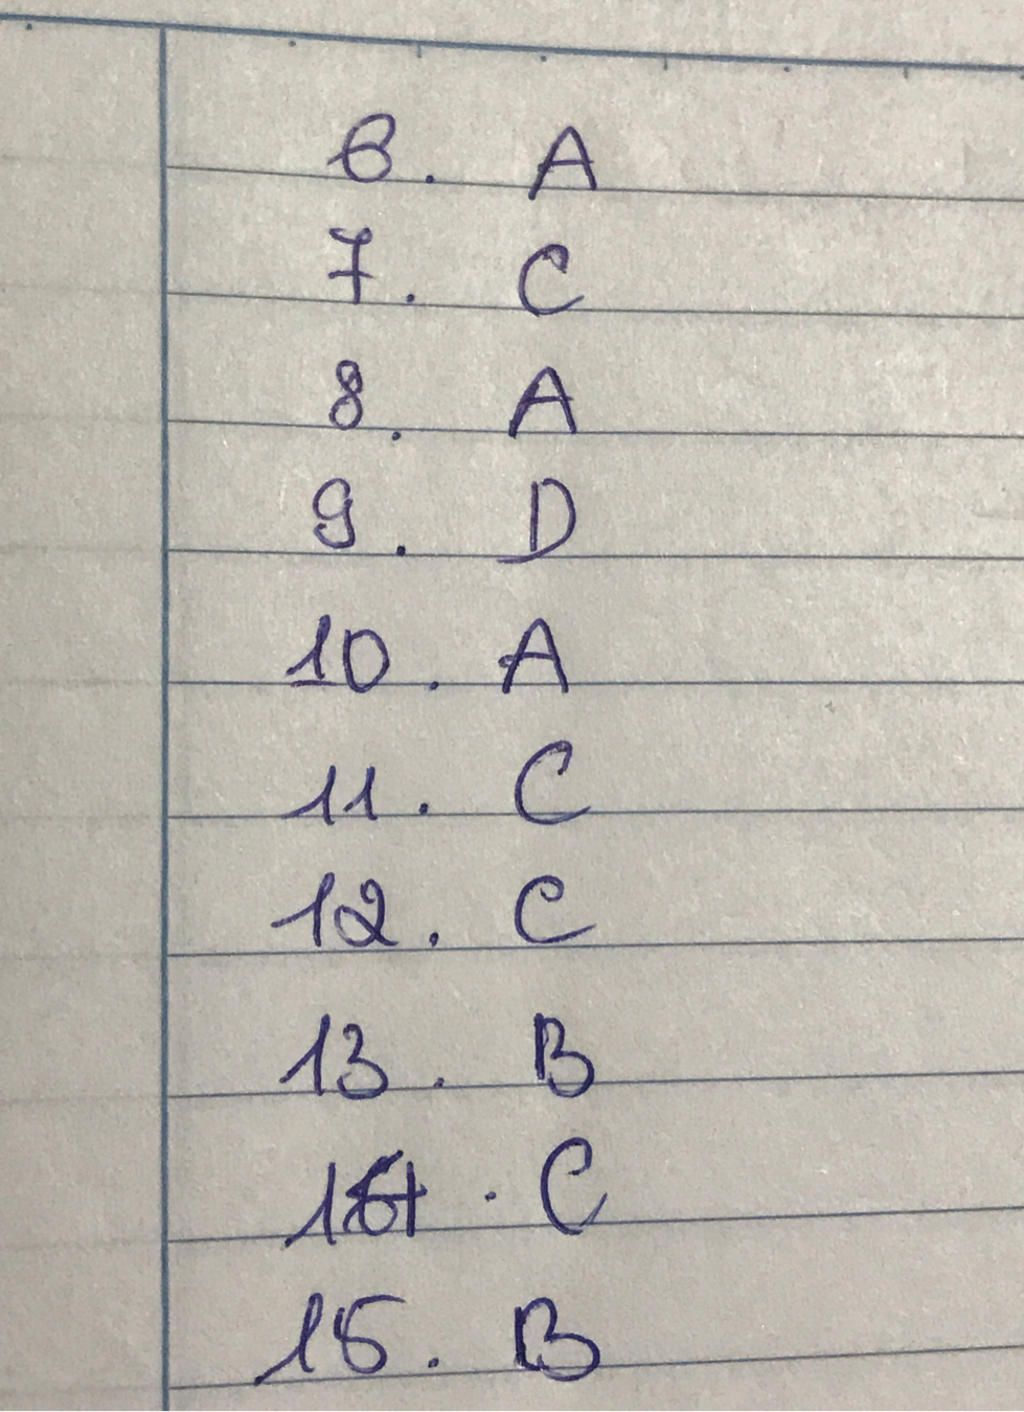 6. A
7. C
8. A
9. D
10. A
11. C
12. C
13. B
14. C
15. B